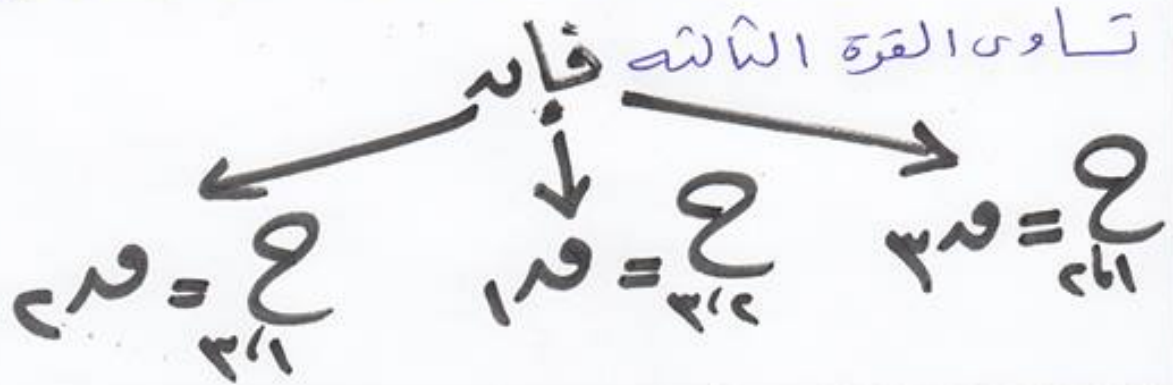 تساوى القوة الثالثه فإن
ح١،٢ = ق٣
ح٢،٣ = ق١
ح١،٣ = ق٢